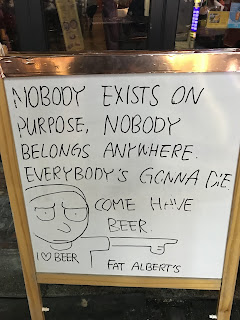 NOBODY EXISTS ON
PURPOSE, NOBODY
BELONGS ANYWHERE.
EVERYBODY'S GONNA DIE.
COME HAVE
BEER.
I ♡ BEER
FAT ALBERT'S